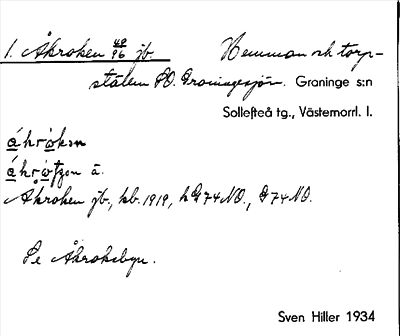 1. Åkroken 49/96 jb. Hemman och torp-
ställen SO. Graningesjön. Graninge s:n
Sollefteå tg., Västernorrl. l.
ákròkən
ákròtʃən ä.
Åkroken jb., kb. 1919, h G74 NO., G 74 NO.
Se Åkroksbyn.
Sven Hiller 1934